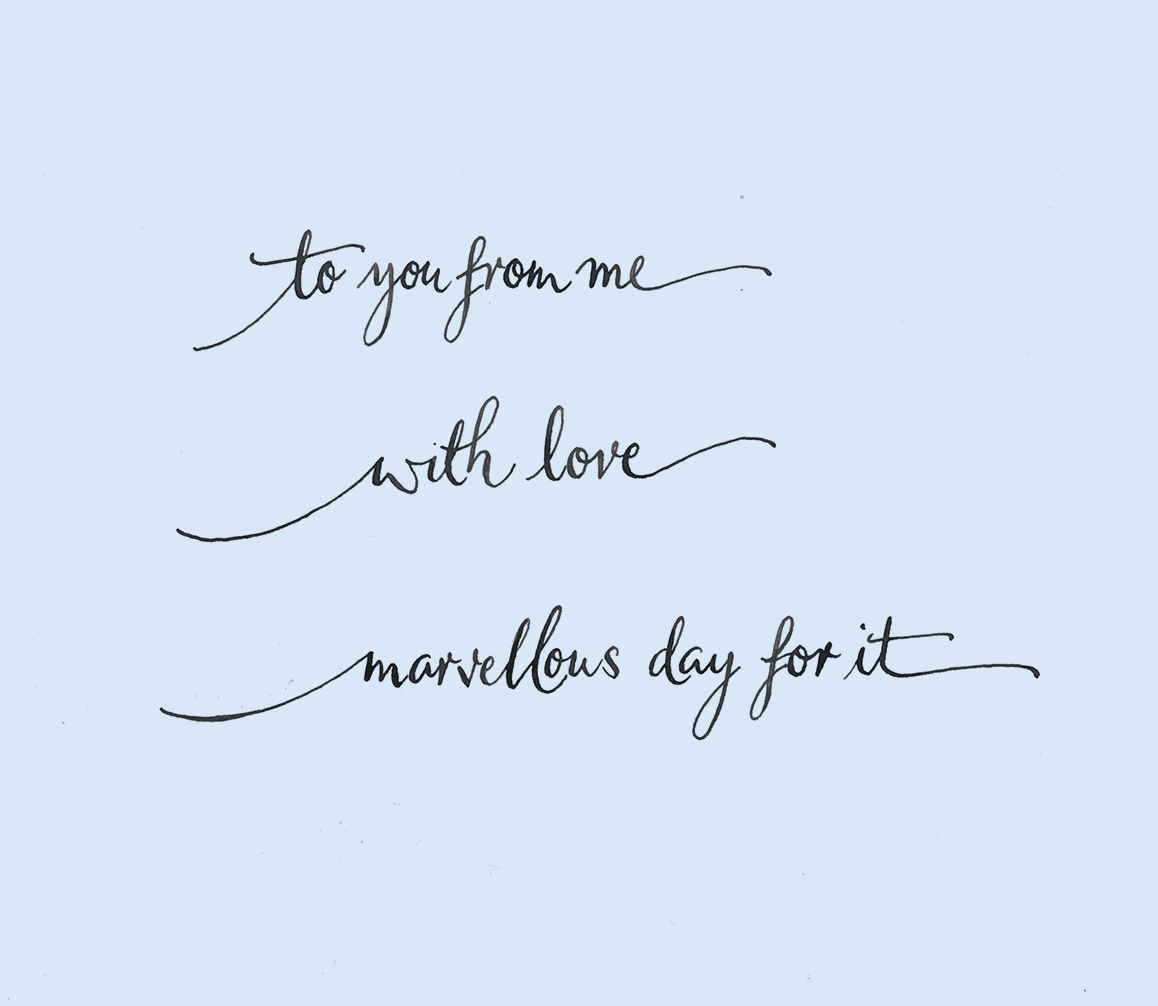 to you from me
with love
marvellous day for it